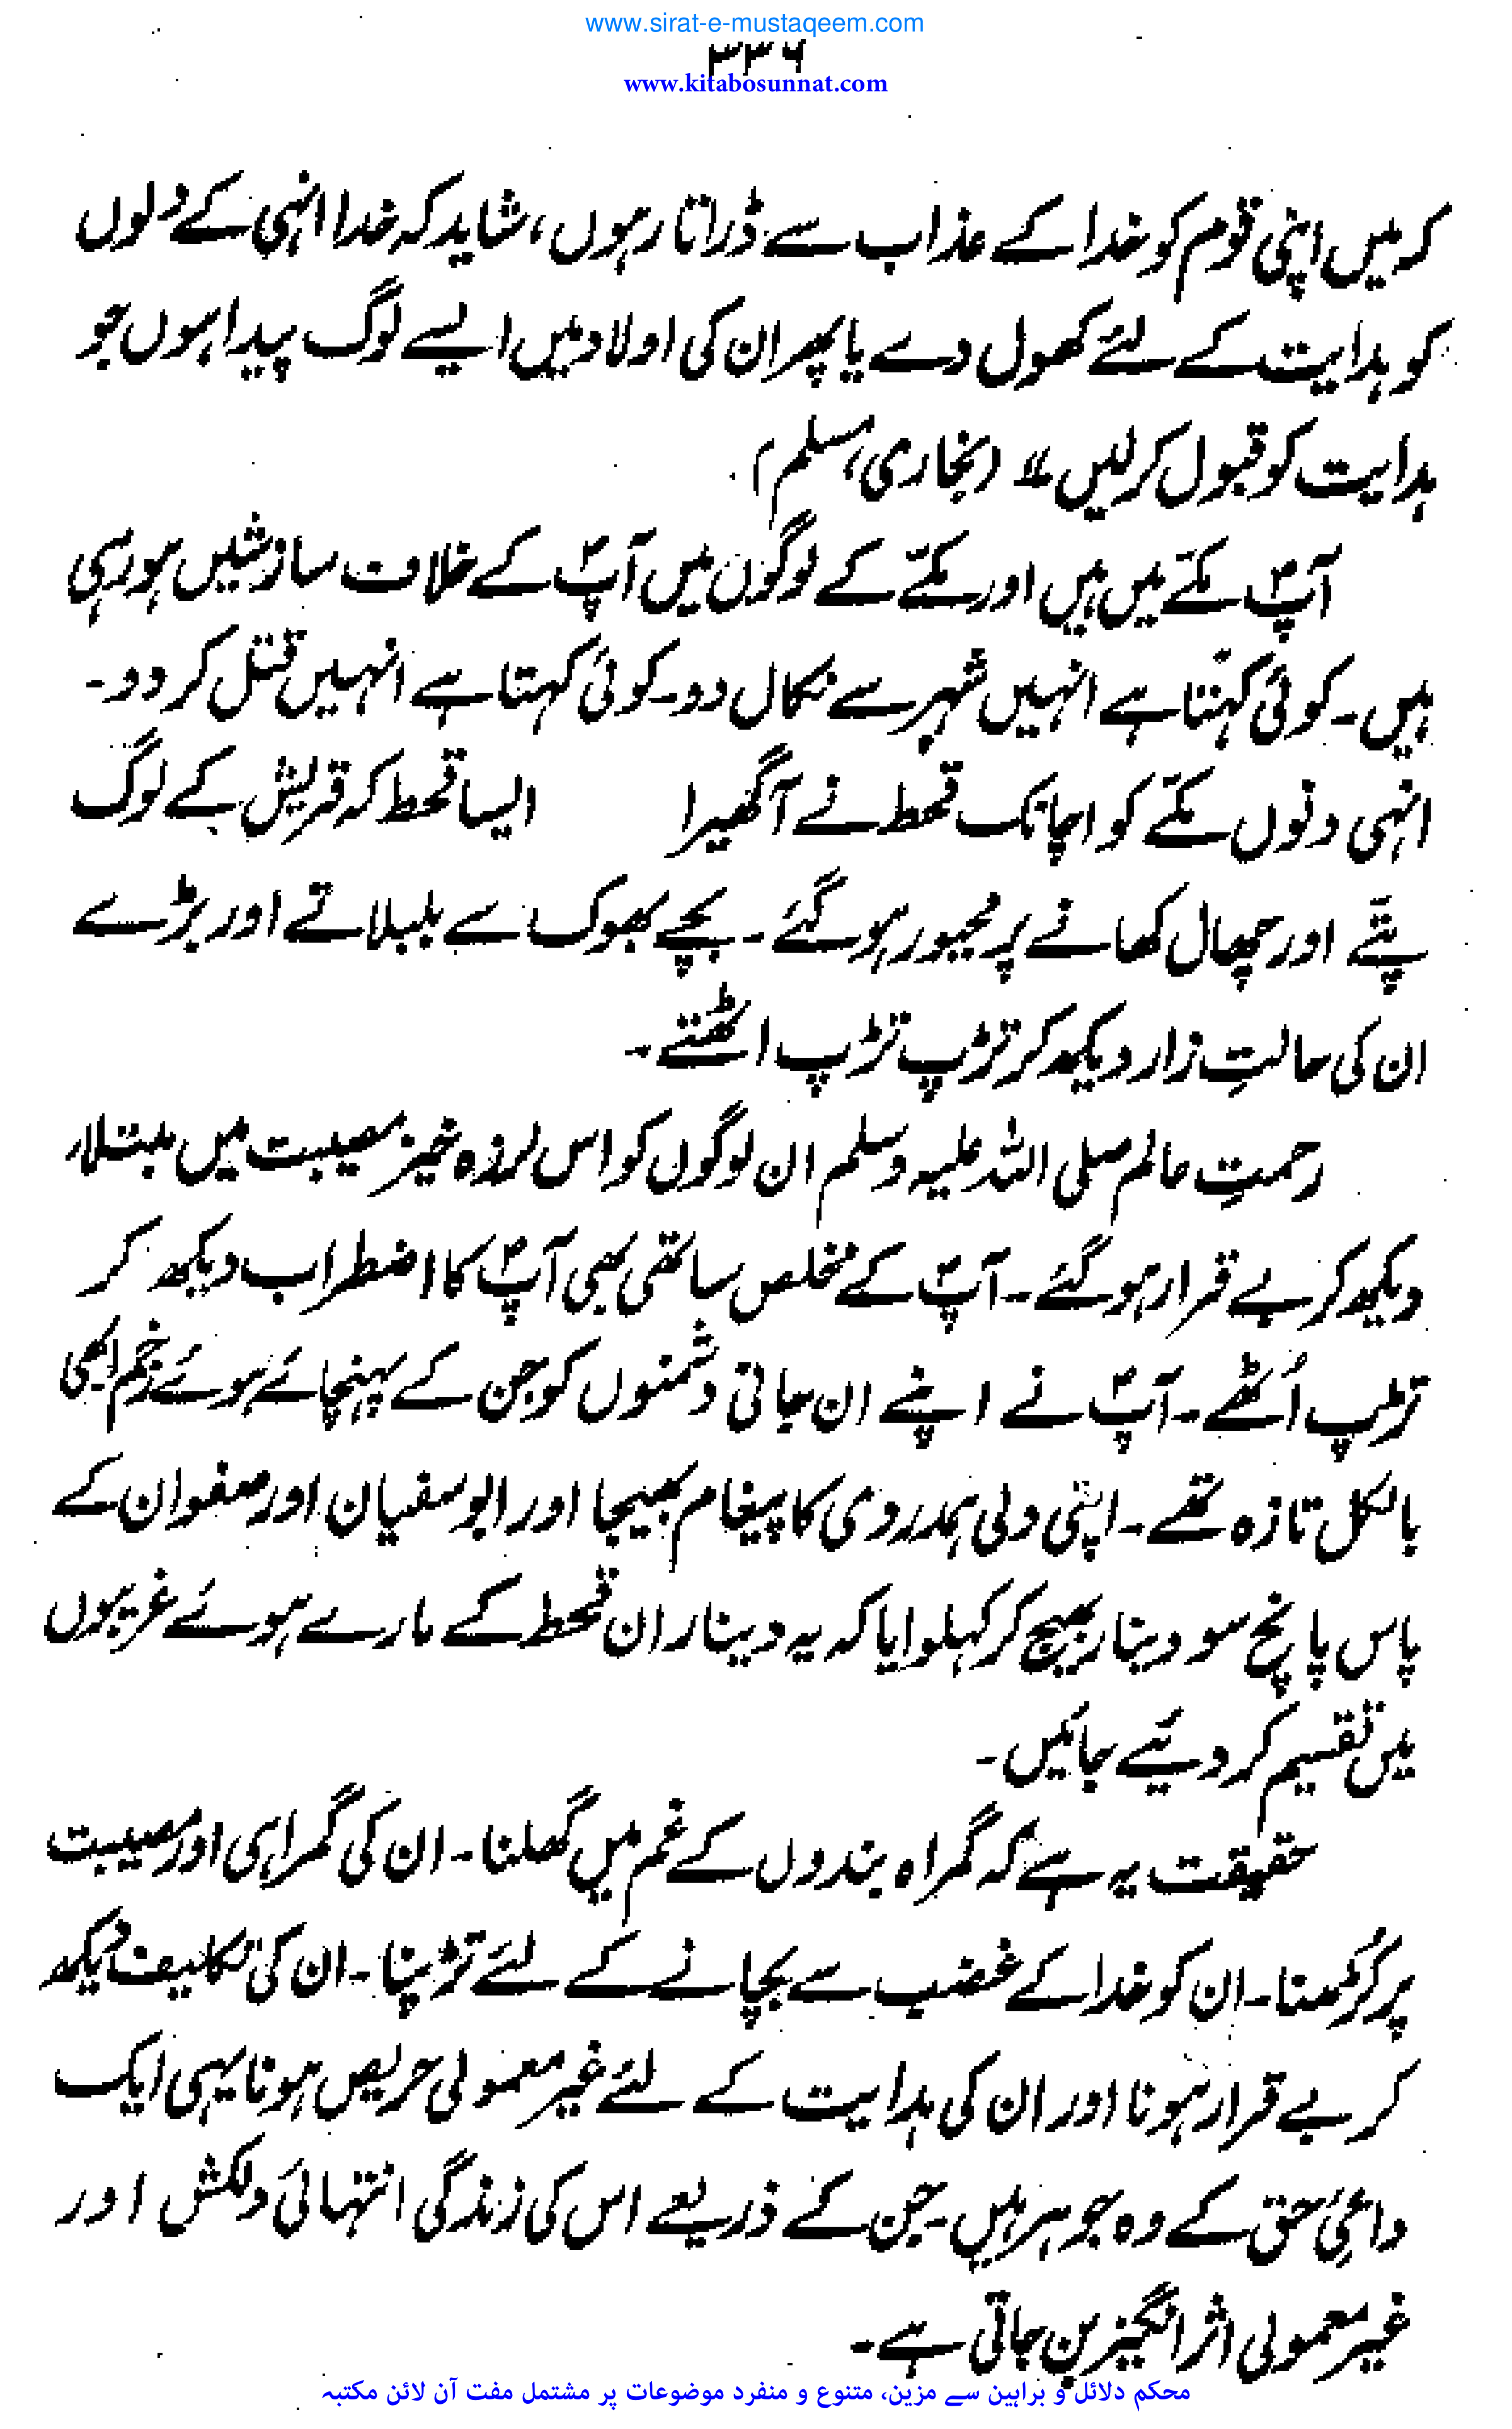 www.sirat-e-mustaqeem.com
۳۳۶
www.kitabosunnat.com
کر میں اپنی قوم کو خدا کے عذاب سے ڈراتا رہوں، شاید کہ خدا انہی کے دلوں
کو ہدایت کے لئے کھول دے یا پھر ان کی اولاد میں ایسے لوگ پیدا ہوں جو
ہدایت کو قبول کرلیں ״ (بخاری، مسلم)
آپؐ مکّے میں ہیں اور مکّے کے لوگوں میں آپؐ کے خلاف سازشیں ہو رہی
ہیں۔ کوئی کہتا ہے انہیں شہر سے نکال دو۔ کوئی کہتا ہے انہیں قتل کر دو۔
انہی دنوں مکّے کو اچانک قحط نے آگھیرا ایسا قحط کہ قریش کے لوگ
پتّے اور چھال کھانے پر مجبور ہو گئے۔ بچے بھوک سے بلبلاتے اور بڑے
ان کی حالتِ زار دیکھ کر تڑپ تڑپ اٹھتے۔
رحمتِ عالم صلی اللہ علیہ وسلم ان لوگوں کو اس لرزہ خیز مصیبت میں مبتلاء
دیکھ کر بے قرار ہو گئے۔ آپؐ کے مخلص ساتھی بھی آپؐ کا اضطراب دیکھ کر
تڑپ اُٹھے۔ آپؐ نے اپنے ان جانی دشمنوں کو جن کے پہنچائے ہوئے زخم ابھی
بالکل تازہ تھے۔ اپنی دلی ہمدردی کا پیغام بھیجا اور ابوسفیان اور صفوان کے
پاس پانچ سو دینار بھیج کر کہلوایا کہ یہ دینار ان قحط کے مارے ہوئے غریبوں
میں تقسیم کر دیئے جائیں۔
حقیقت یہ ہے کہ گمراہ بندوں کے غم میں گھلنا۔ ان کی گمراہی اور مصیبت
پر کُڑھنا۔ ان کو خدا کے غضب سے بچانے کے لئے تڑپنا۔ ان کی تکالیف دیکھ
کر بے قرار ہونا اور ان کی ہدایت کے لئے غیر معمولی حریص ہونا یہی ایک
داعیٔ حق کے وہ جوہر ہیں۔ جن کے ذریعے اس کی زندگی انتہائی دلکش اور
غیر معمولی اثر انگیز بن جاتی ہے۔
محکم دلائل و براہین سے مزین، متنوع و منفرد موضوعات پر مشتمل مفت آن لائن مکتبہ